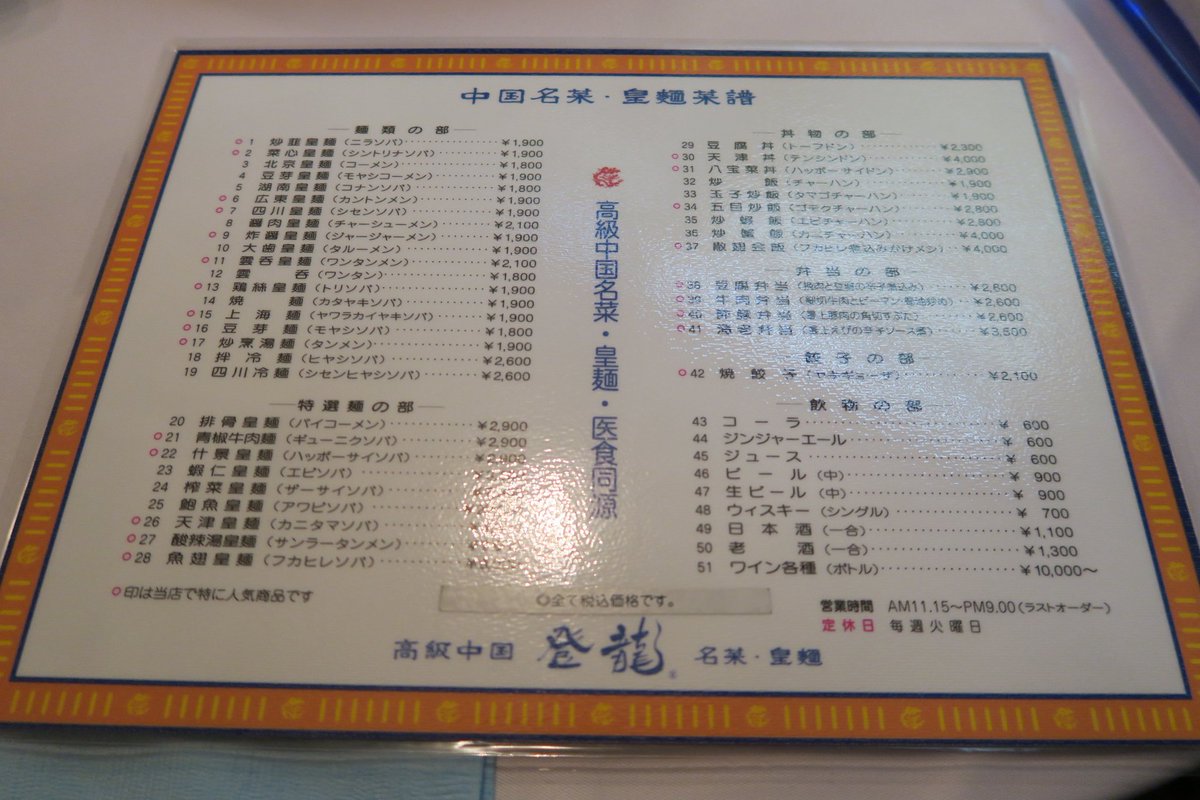 中国名菜・皇麺菜譜
麺類の部
○ 1 炒韮皇麺（ニラソバ） ¥1,900
○ 2 菜心皇麺（シントリチソバ） ¥1,900
3 北京皇麺（コーメン） ¥1,800
4 豆芽皇麺（モヤシコーメン） ¥1,900
5 湖南皇麺（コナンソバ） ¥1,800
○ 6 広東皇麺（カントンメン） ¥1,900
○ 7 四川皇麺（シセンソバ） ¥1,900
8 醤肉皇麺（チャーシューメン） ¥2,100
○ 9 炸醤皇麺（ジャージャーメン） ¥1,900
10 大歯皇麺（タルーメン） ¥1,900
○ 11 雲呑皇麺（ワンタンメン） ¥2,100
12 雲呑（ワンタン） ¥1,800
○ 13 鶏絲皇麺（トリソバ） ¥1,900
14 焼麺（カタヤキソバ） ¥1,900
○ 15 上海麺（ヤワラカイヤキソバ） ¥1,900
○ 16 豆芽麺（モヤシソバ） ¥1,800
○ 17 炒烹湯麺（タンメン） ¥1,900
18 拌冷麺（ヒヤシソバ） ¥2,600
19 四川冷麺（シセンヒヤシソバ） ¥2,600
特選麺の部
20 排骨皇麺（パイコーメン） ¥2,900
○ 21 青椒牛肉麺（ギューニクソバ） ¥2,900
○ 22 什景皇麺（ハッポーサイソバ） ¥2,900
23 蝦仁皇麺（エビソバ）
24 榨菜皇麺（ザーサイソバ）
25 鮑魚皇麺（アワビソバ）
○ 26 天津皇麺（カニタマソバ）
○ 27 酸辣湯皇麺（サンラータンメン）
○ 28 魚翅皇麺（フカヒレソバ）
○印は当店で特に人気商品です
高級中国名菜・皇麺・医食同源
丼物の部
29 豆腐丼（トーフドン） ¥2,300
○ 30 天津丼（テンシンドン） ¥4,000
○ 31 八宝菜丼（ハッポーサイドン） ¥2,900
32 炒飯（チャーハン） ¥1,900
33 玉子炒飯（タマゴチャーハン） ¥1,900
○ 34 五目炒飯（ゴモクチャーハン） ¥2,800
35 炒蝦飯（エビチャーハン） ¥2,800
36 炒蟹飯（カニチャーハン） ¥4,000
○ 37 散翅会飯（フカヒレ煮込みかけメシ） ¥4,000
弁当の部
○ 38 豆腐弁当（挽肉と豆腐の辛子煮込み） ¥2,600
○ 39 牛肉弁当（細切牛肉とピーマン醤油炒め） ¥2,600
○ 40 酢豚弁当（薄上豚肉の角切すぶた） ¥2,600
○ 41 弁当 ¥3,500
餃子の部
○ 42 焼餃子（ヤキギョーザ） ¥2,100
飲物の部
43 コーラ ¥ 600
44 ジンジャーエール ¥ 600
45 ジュース ¥ 600
46 ビール（中） ¥ 900
47 生ビール（中） ¥ 900
48 ウィスキー（シングル） ¥ 700
49 日本酒（一合） ¥1,100
50 老酒（一合） ¥1,300
51 ワイン各種（ボトル） ¥10,000～
◎全て税込価格です。
営業時間 AM11.15～PM9.00（ラストオーダー）
定休日 毎週火曜日
高級中国 登龍® 名菜・皇麺